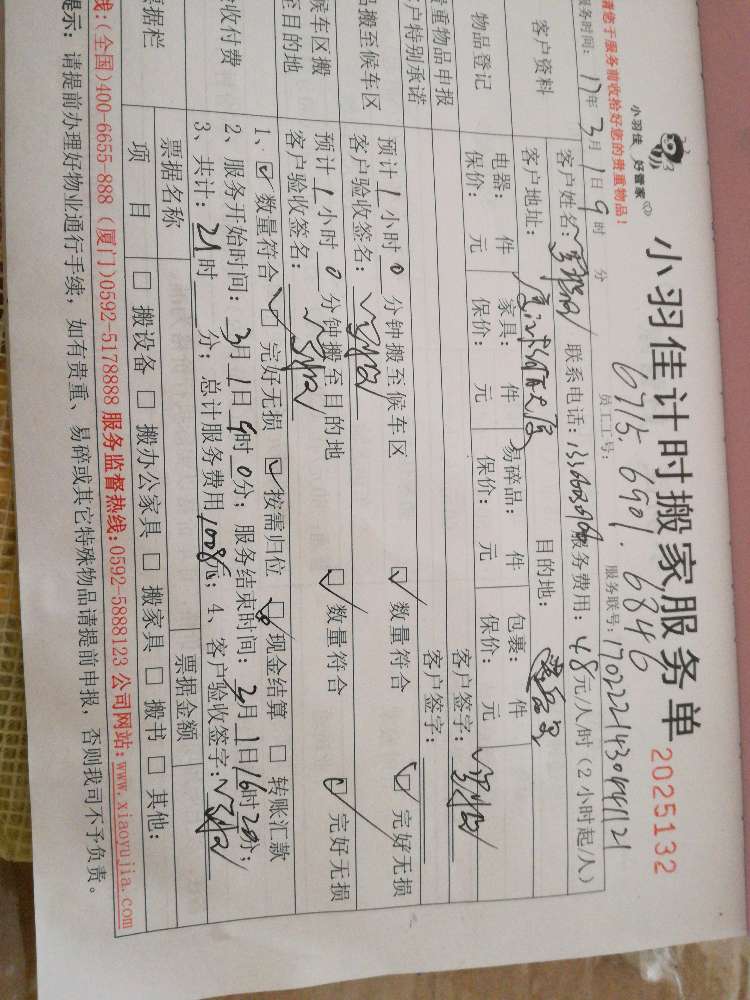 小羽佳 好管家
小羽佳计时搬家服务单 2025132
6915. 6901. 6846
请您于服务前收拾好您的贵重物品!
员工工号:
服务时间: 17年 3月 1日 9时 分 服务联号:
客户资料
客户姓名: 联系电话: 服务费用: 48元/人/时(2小时起/人)
客户地址: 目的地:
物品登记
电器: 件 家具: 件 易碎品: 件 包裹: 件
保价: 元 保价: 元 保价: 元 保价: 元
客户签字:
重物品申报
户特别承诺
客户签字:
品搬至候车区
预计1小时0分钟搬至候车区 数量符合 完好无损
客户验收签名:
候车区搬
至目的地
预计1小时0分钟搬至目的地 数量符合 完好无损
客户验收签名:
收付费
1、 数量符合 完好无损 按需归位 现金结算 转账汇款
2、服务开始时间: 3月1日9时0分; 服务结束时间: 3月1日16时20分;
3、共计: 21时 分; 总计服务费用1008元; 4、客户验收签字:
票据栏
票据名称 票据金额
项目 搬设备 搬办公家具 搬家具 搬书 其他:
线:(全国)400-6655-888 (厦门)0592-5178888 服务监督热线:0592-5888123 公司网站:www.xiaoyujia.com
提示: 请提前办理好物业通行手续, 如有贵重、易碎或其它特殊物品请提前申报, 否则我司不予负责。